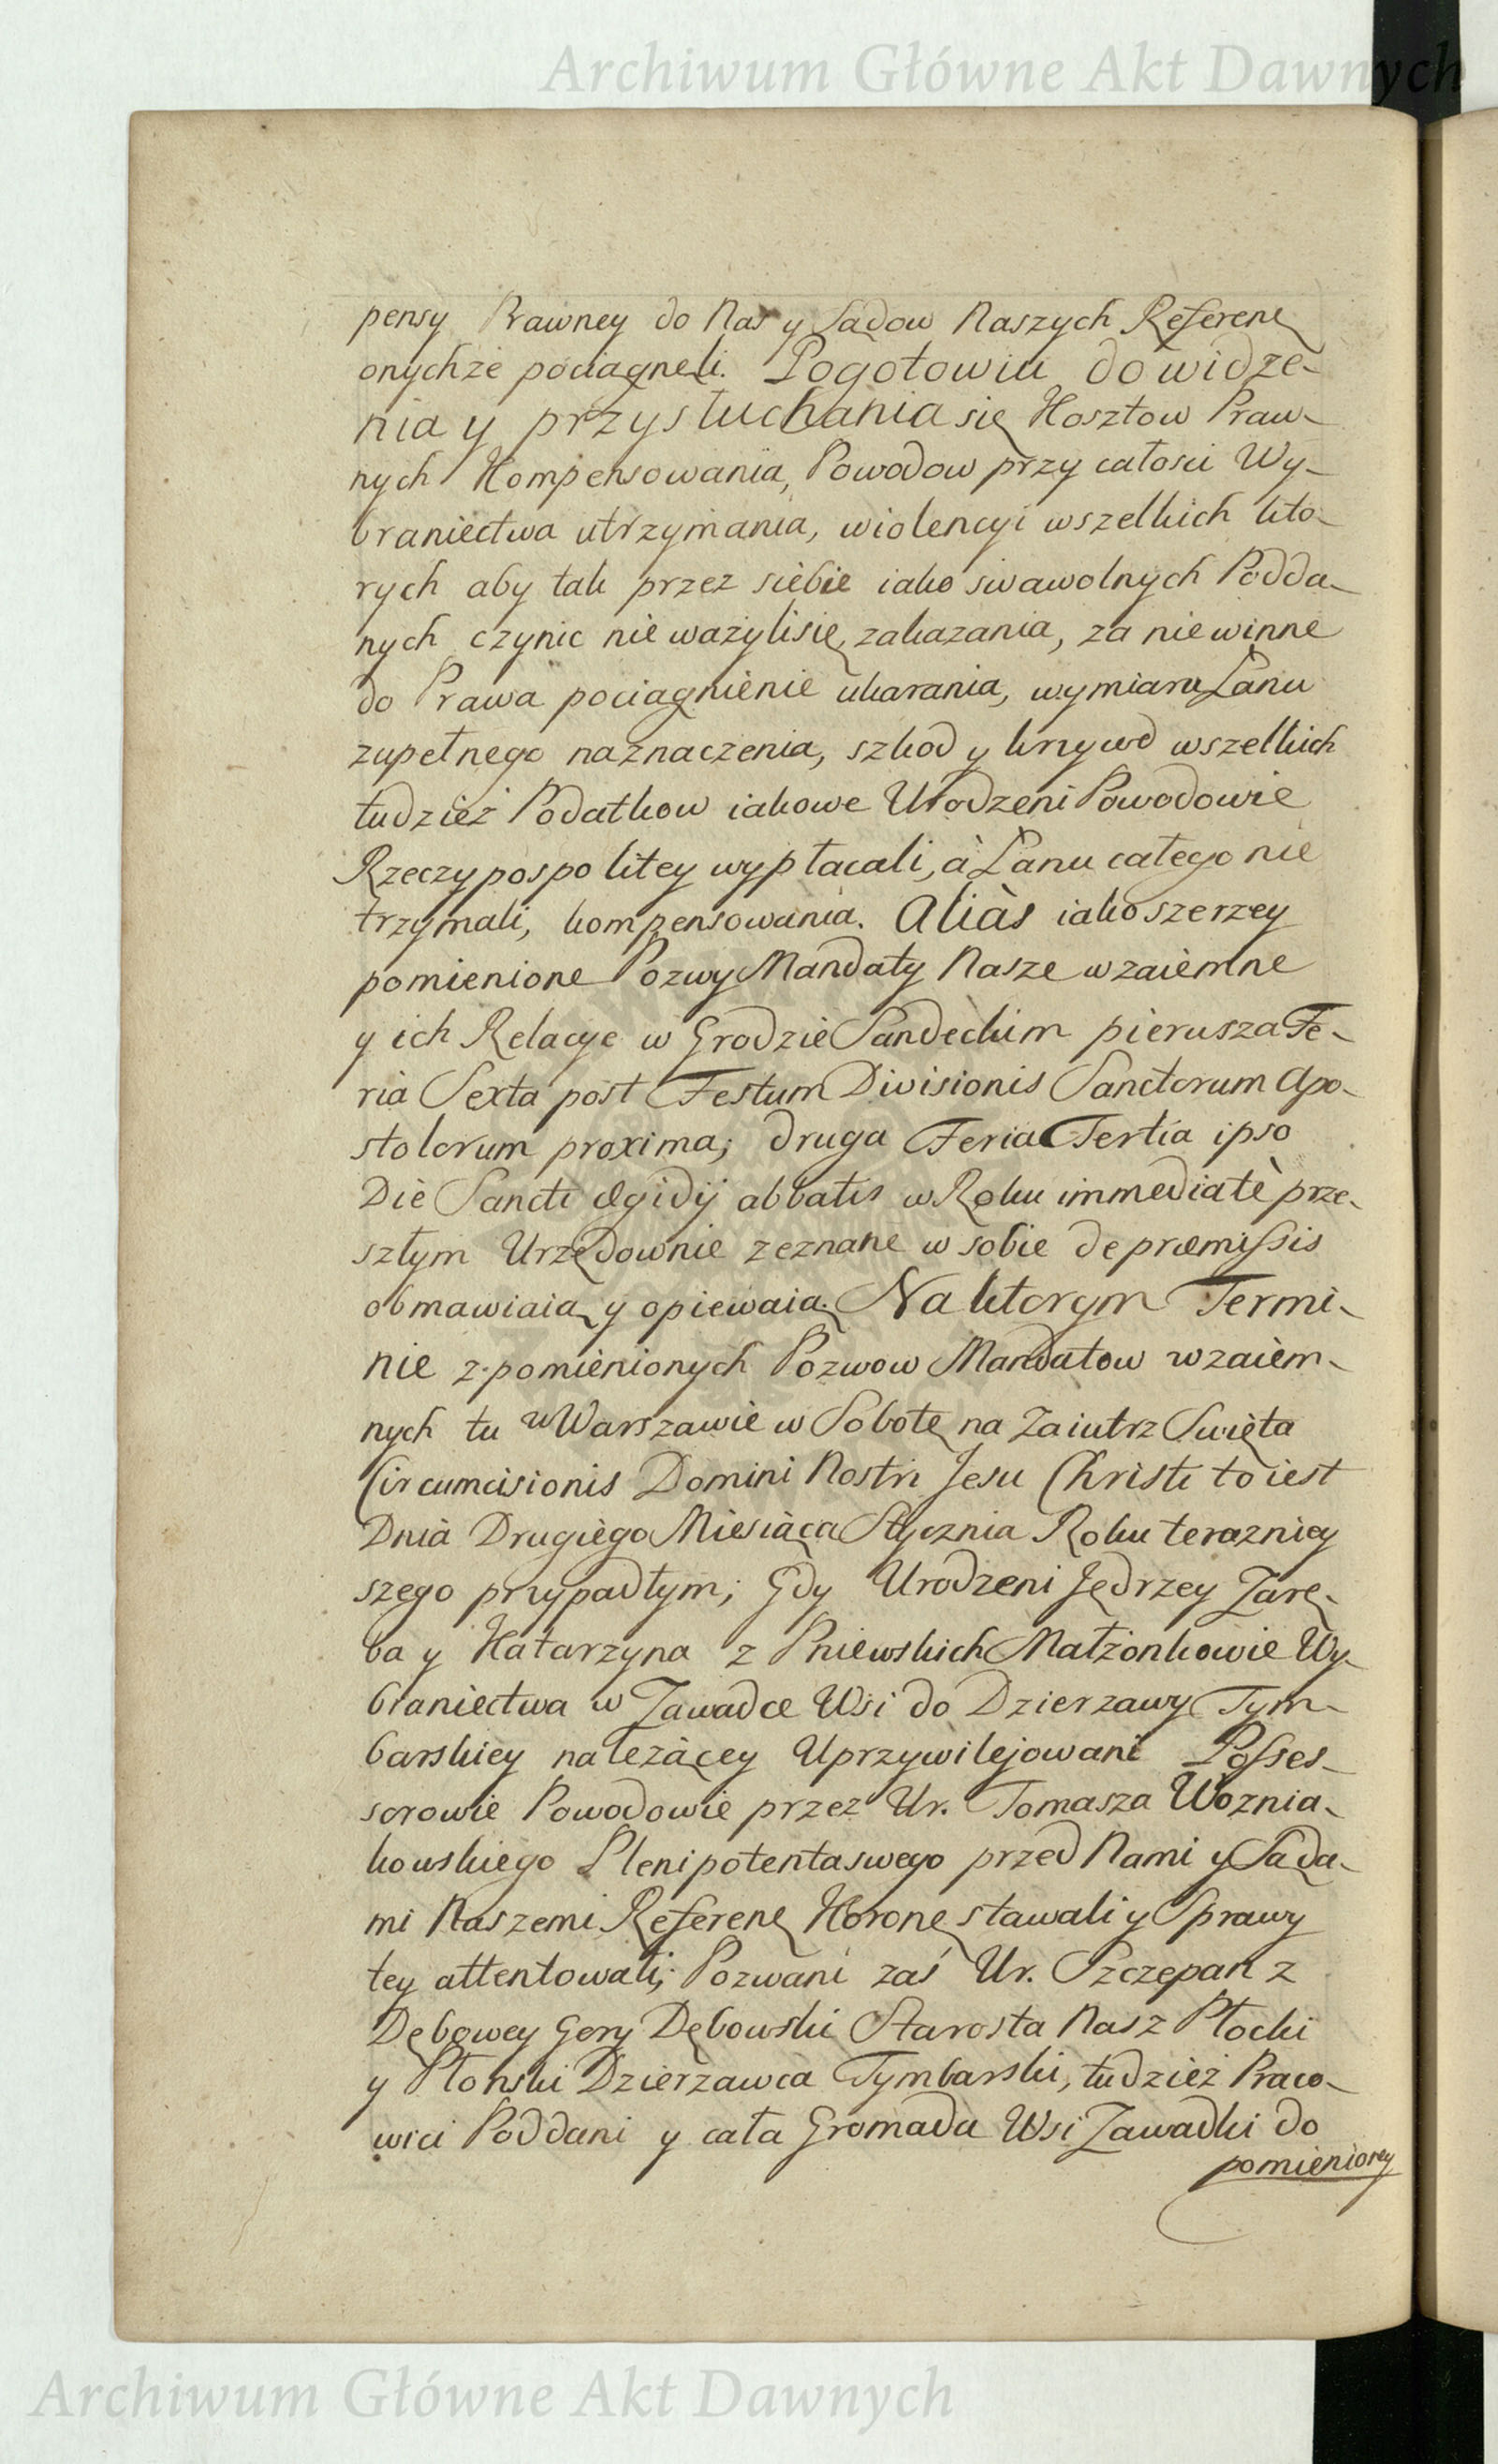 Archiwum Główne Akt Dawnych
pensy Prawney do Nas y Sądow Naszych Referenẹ
onychże pociągneli. Pogotowiu do widze-
nia y przysłuchania się Kosztow Praw-
nych Kompensowania, Powodow przy całosci Wy-
braniectwa utrzymania, wiolencyi wszelkich kto-
rych aby tak przez siebie iako swawolnych Podda-
nych czynic nie ważylisię, zakazania, za niewinne
do Prawa pociągnienie ukarania, wymiaru Łanu
zupełnego naznaczenia, szkod y krzywd wszelkich
tudzież Podatkow iakowe Urodzeni Powodowie
Rzeczypospolitey wypłacali, à Łanu całego nie
trzymali, kompensowania. Aliàs iako szerzey
pomienione Pozwy Mandaty Nasze wzaiemne
y ich Relacye w Grodzie Sandeckim pierwsza Fe-
ria Sexta post Festum Divisionis Sanctorum Apo-
stolorum proxima; druga Feria Tertia ipso
Die Sancti Ægidij abbatis w Roku immediatè prze-
szłym Urzędownie zeznane w sobie de præmissis
obmawiaią y opiewaią. Na ktorym Termi-
nie z pomienionych Pozwow Mandatow wzaiem-
nych tu w Warszawie w Sobotę na Zaiutrz Swięta
Circumcisionis Domini Nostri Jesu Christi to iest
Dnia Drugiego Miesiąca Stycznia Roku terazniey
szego przypadłym; Gdy Urodzeni Jędrzey Zarę-
ba y Katarzyna z Pniewskich Małżonkowie Wy-
braniectwa w Zawadce Wsi do Dzierzawy Tym-
barskiey należącey Uprzywilejowani Posses-
sorowie Powodowie przez Ur. Tomasza Woznia-
kowskiego Plenipotenta swego przed Nami y Sąda-
mi Naszemi Referenę Koronę stawali y Sprawy
tey attentowali; Pozwani zaś Ur. Szczepan z
Dębowey Gory Dębowski Starosta Nasz Płocki
y Płonski Dzierzawca Tymbarski, tudzież Praco-
wici Poddani y cała Gromada Wsi Zawadki do
pomienioney
Archiwum Główne Akt Dawnych